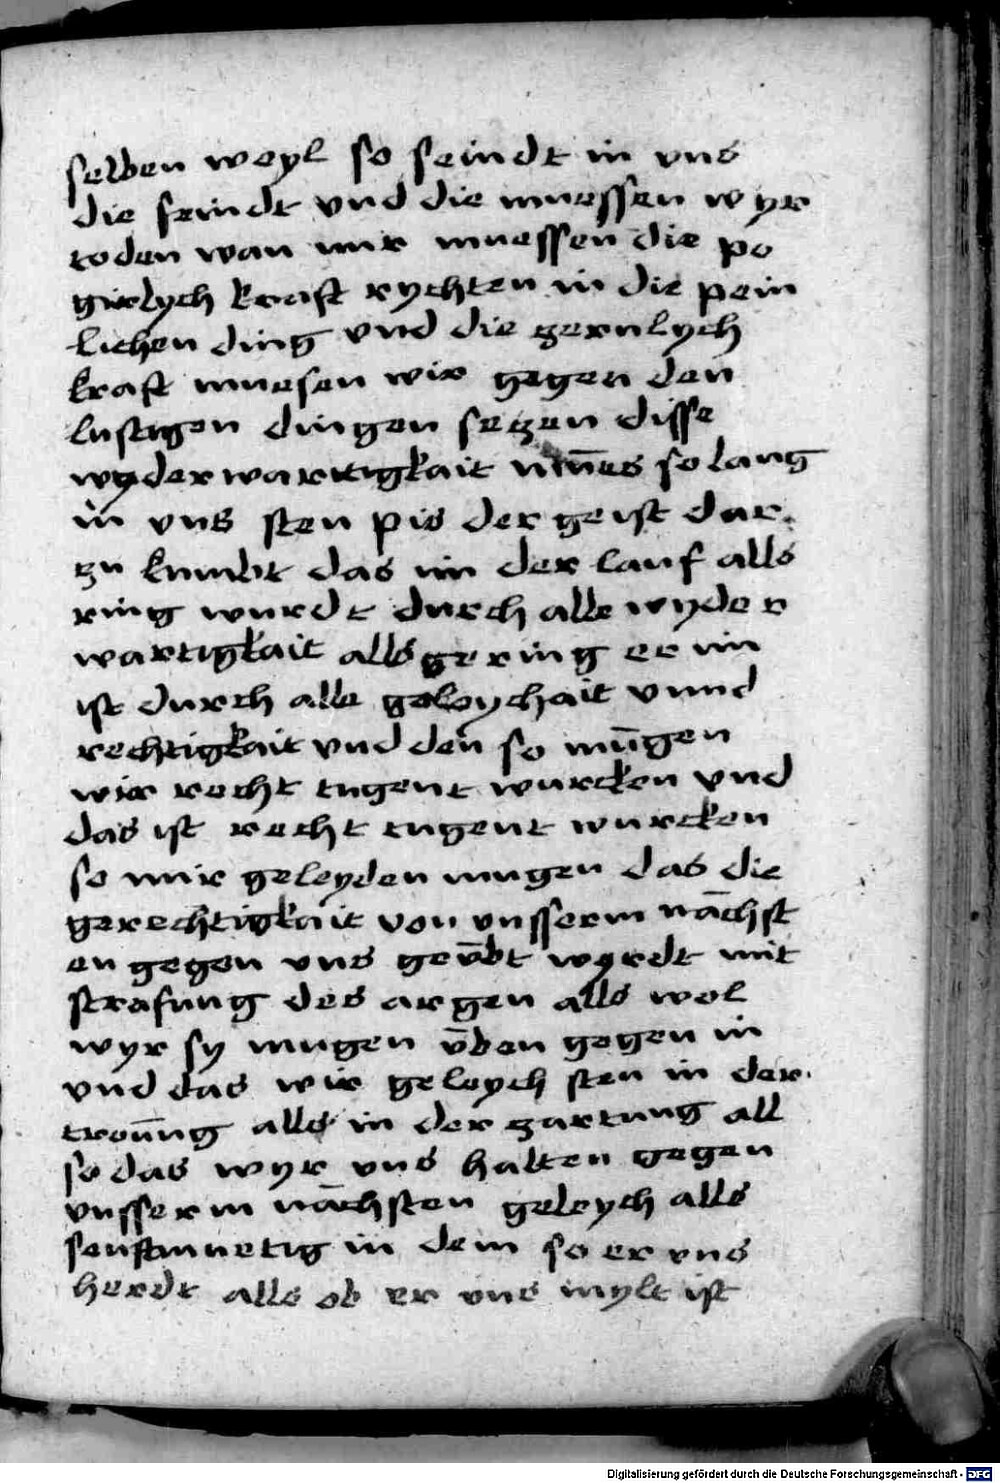 selben weyl so seindt in vns
die feindt vnd die muessen wyr
toden wan mir muessen die po
girlych kraft rychten in die pein
lichen ding vnd die zernlych
kraft muesen wir gegen den
lustigen dingen seczen disse
wyderwartigkait mūes so lang
in vns sten pis der geist dar
zu kumbt das im der lauf alls
ring wurdt durch alle wyder
wartigkait alls gering er im
ist durch alle geleychait vnnd
rechtigkait vnd den so mūgen
wir recht tugent wurcken vnd
das ist recht tugent wurcken
so mir geleyden mugen das die
gerechtigkait von vnsserm nāchst
en gegen vns gev̄bt wyrdt mit
strafung des argen alls wol
wyr sy mugen v̄ben gegen in
vnd das wir geleych sten in der
troūng alls in der zartung all
so das wyr vns halten gegen
vnsserm nāchsten geleych alls
senftmuetig in dem so er vns
herdt alls ob er vns mylt ist
Digitalisierung gefördert durch die Deutsche Forschungsgemeinschaft - DFG